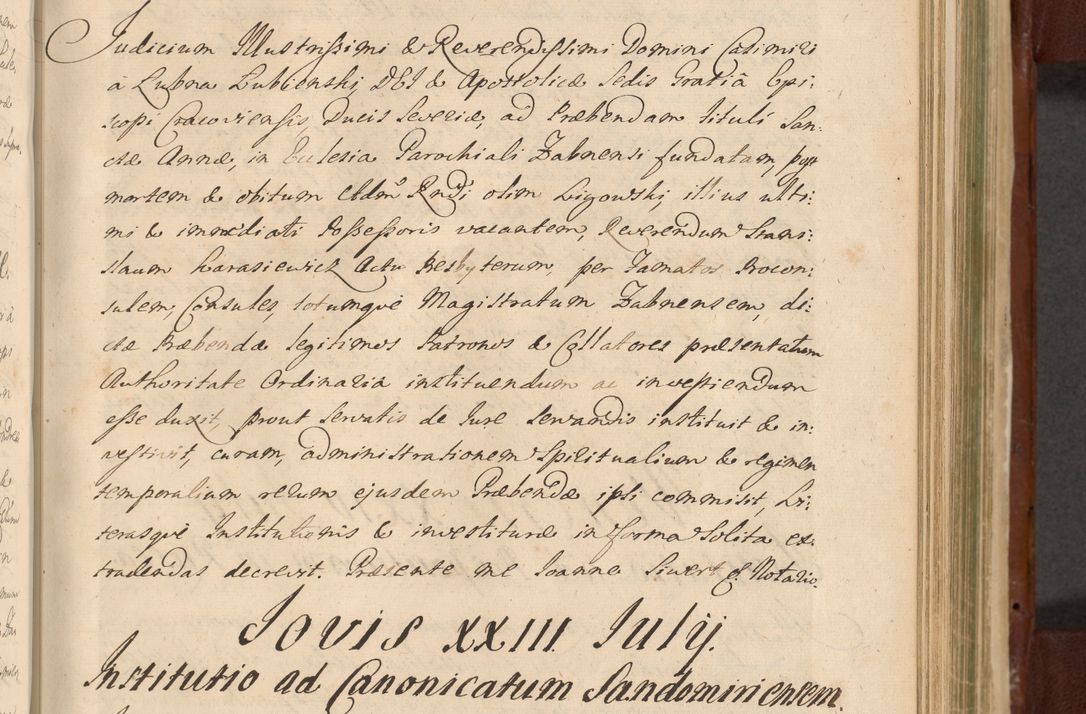 Judicium Illustrissimi & Reverendissimi Domini Casimiri
à Łubna Łubienski, DEI & Apostolicæ Sedis Gratiâ Epi:
scopi Cracoviensis, Ducis Severiæ, ad Præbendam tituli San:
ctæ Annæ, in Eclesia Parochiali Zabnensi fundatam, post
mortem & obitum eldm Rndi olim Ligowski, illius ulti:
mi & immediati Possessoris vacantem, Reverendum Stanis:
slaum Harasiewicz Actu Presbyterum, per Famatos Procon:
sulem, Consules, totumqve Magistratum Zabnensem, di:
ctæ Præbendæ legitimos Patronos & Collatores præsentatum
Authoritate Ordinaria instituendum ac investiendum
esse duxit, prout servatis de Jure servandis instituit & in:
vestivit, curam, administrationem Spiritualium & regimen
temporalium rerum ejusdem Præbendæ ipsi commisit, Li:
terasqve Institutionis & investituræ in forma Solita ex:
tradendas decrevit. Præsente me Joanne Siwert &. Notario.
Jovis XXIII July.
Institutio ad Canonicatum Sandomiriensem.